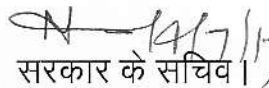 14/7/1
सरकार के सचिव।